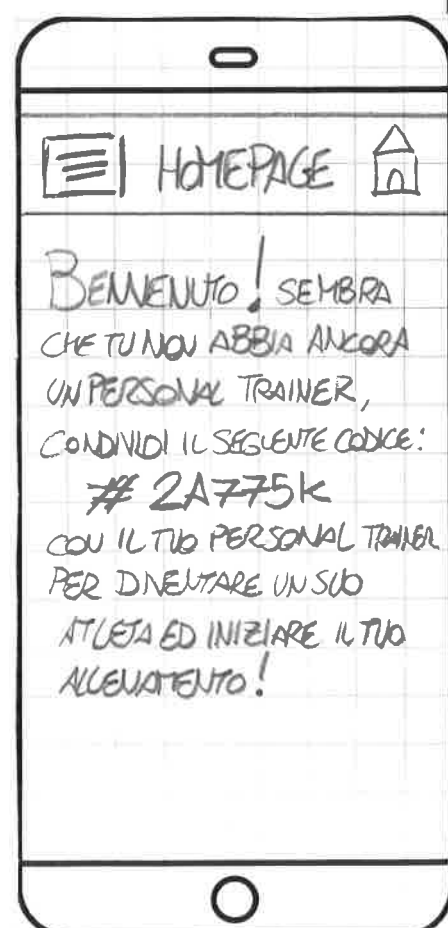 HOMEPAGE
BENVENUTO! SEMBRA
CHE TU NON ABBIA ANCORA
UN PERSONAL TRAINER,
CONDIVIDI IL SEGUENTE CODICE:
# 2A775K
CON IL TUO PERSONAL TRAINER
PER DIVENTARE UN SUO
ATLETA ED INIZIARE IL TUO
ALLENAMENTO!